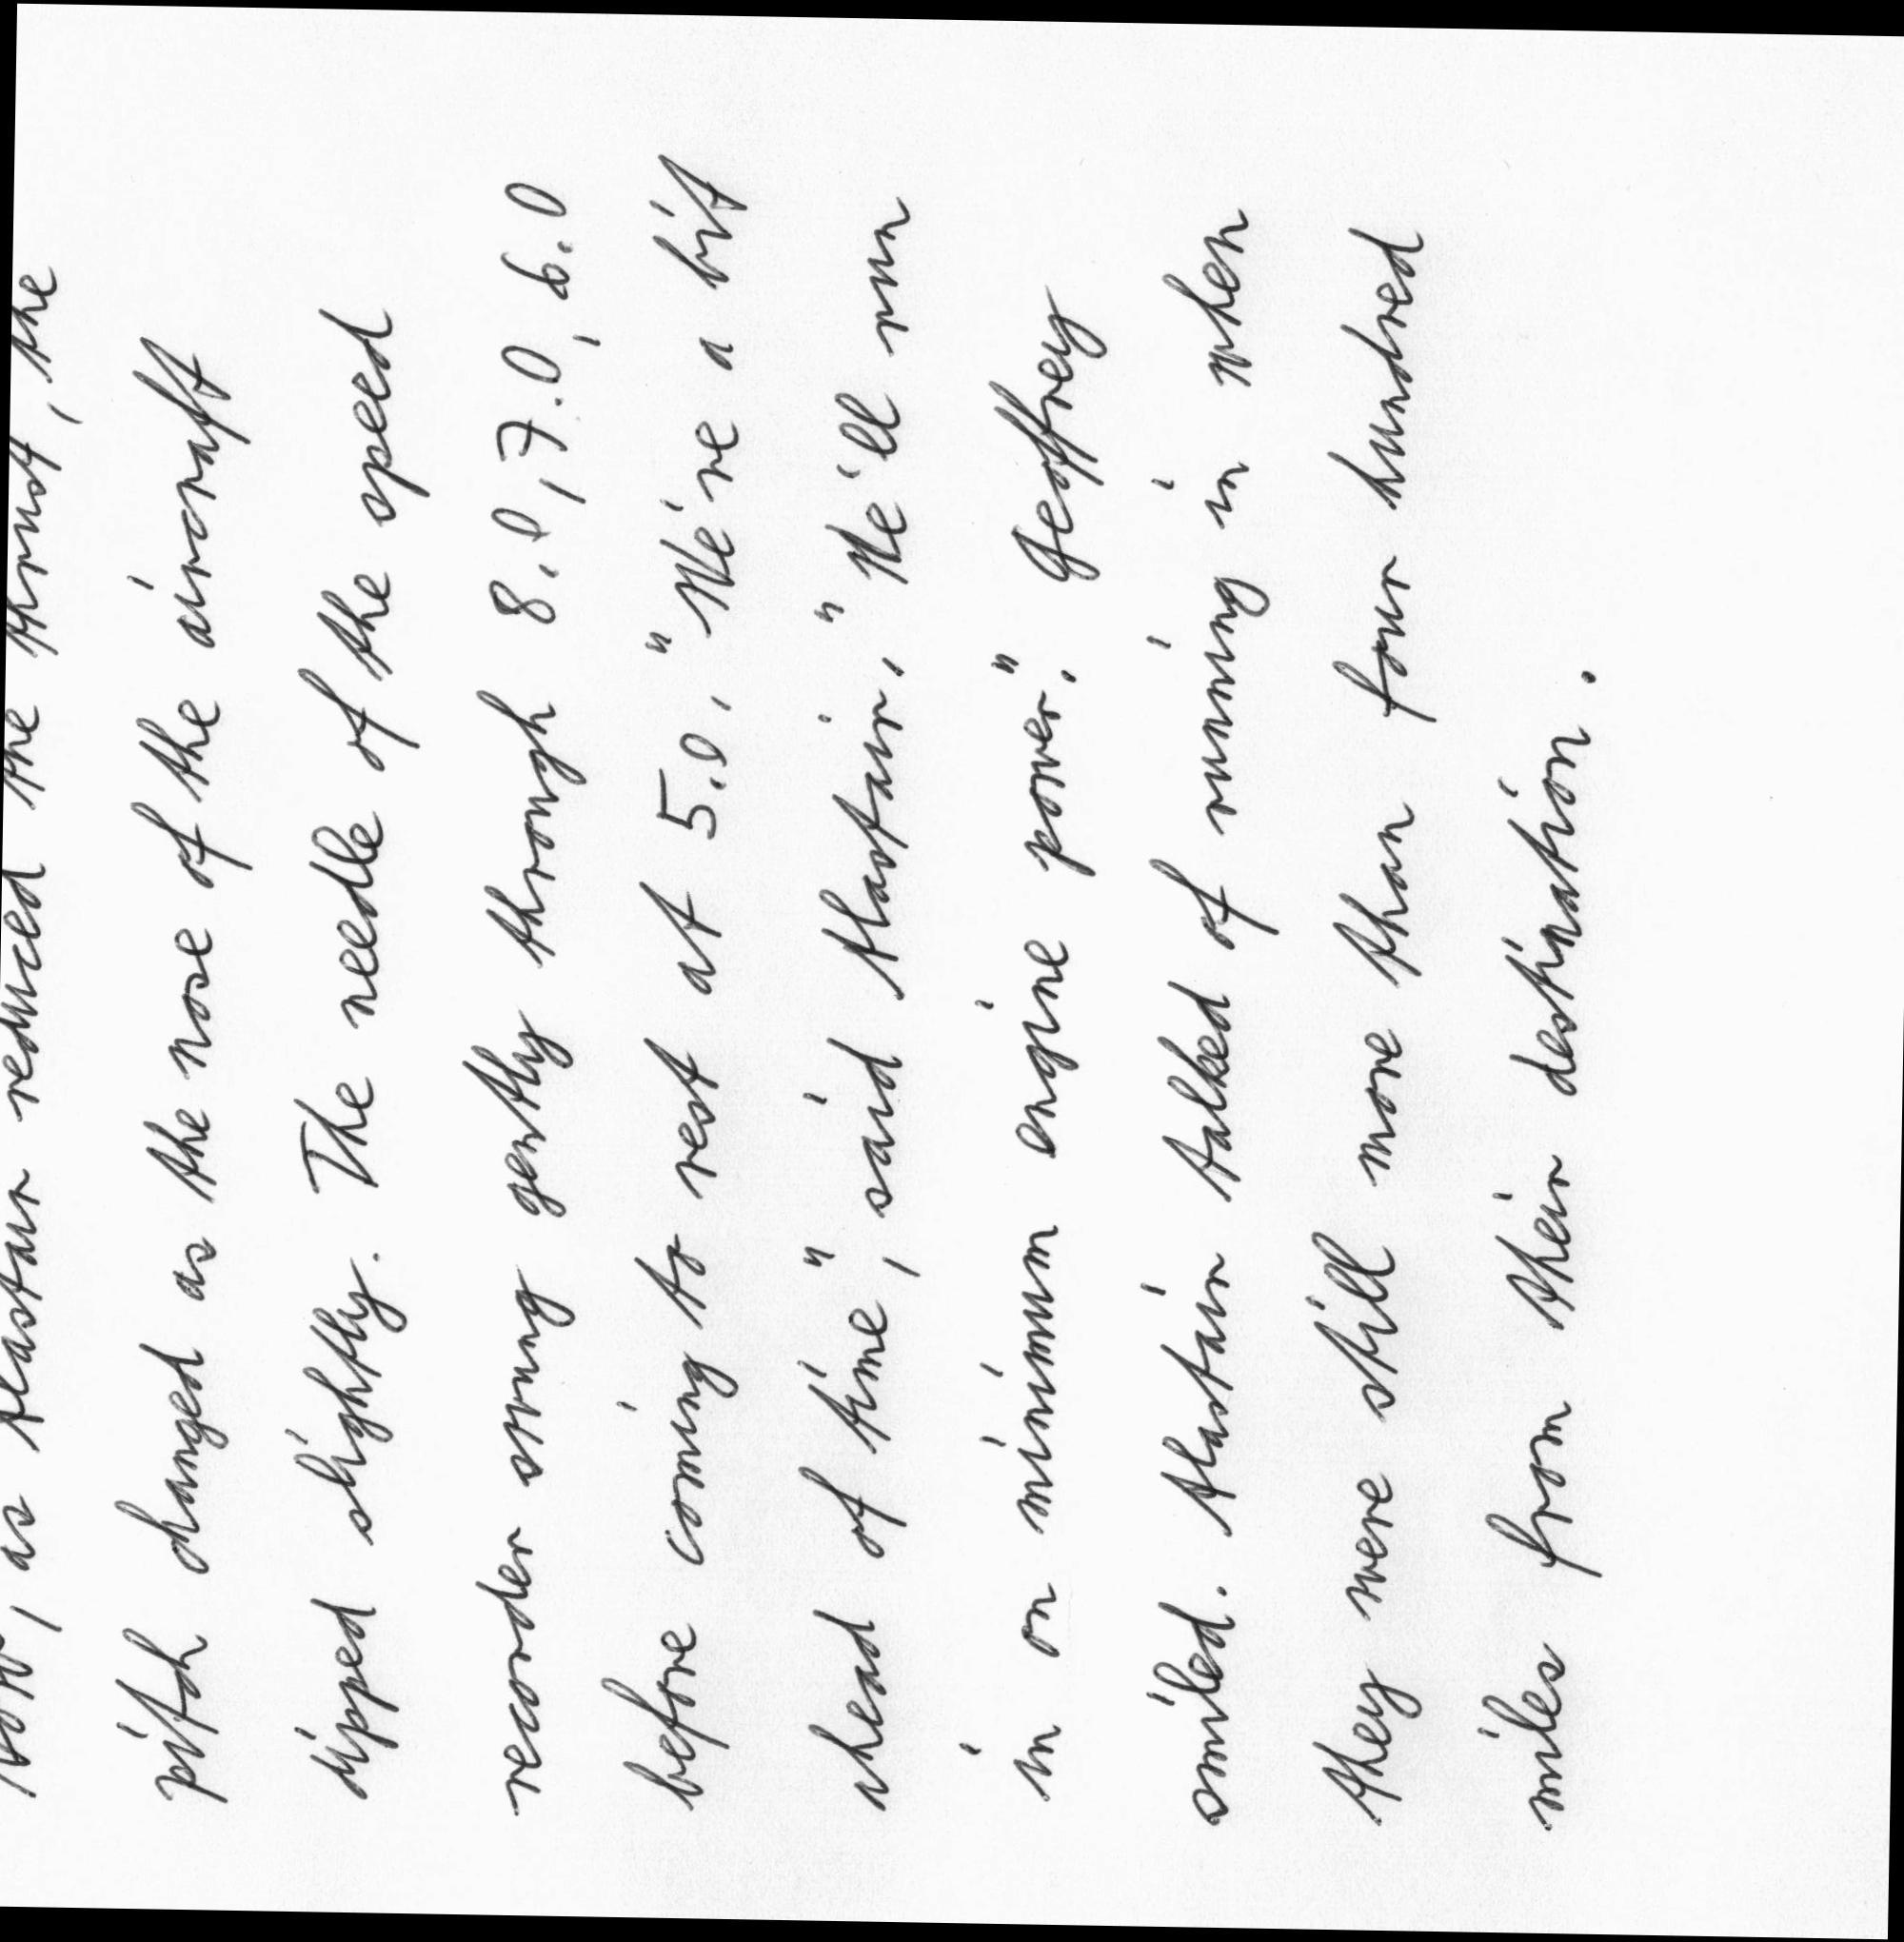 Now, as Alastair reduced the thrust, the
pitch changed as the nose of the aircraft
dipped slightly. The needle of the speed
recorder swung gently through 8.0, 7.0, 6.0
before coming to rest at 5.0. "We're a bit
ahead of time," said Alastair. "We'll run
in on minimum engine power." Geoffrey
smiled. Alastair talked of running in when
they were still more than four hundred
miles from their destination.